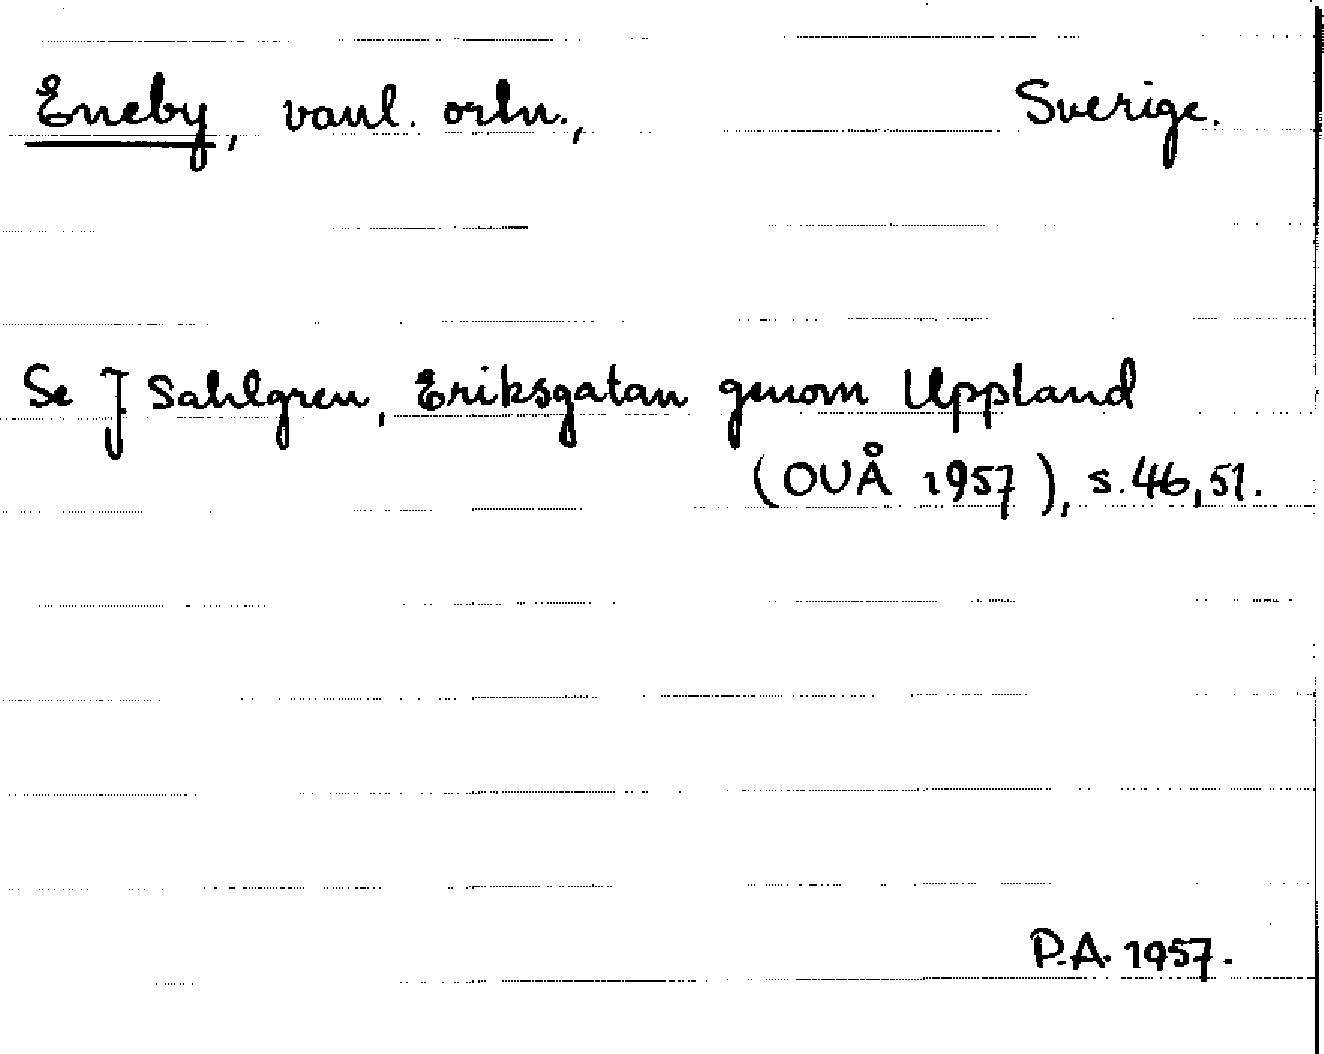 Eneby, vanl. ortn., Sverige.
Se J Sahlgren, Eriksgatan genom Uppland
(OUÅ 1957), s. 46, 51.
P.A. 1957.